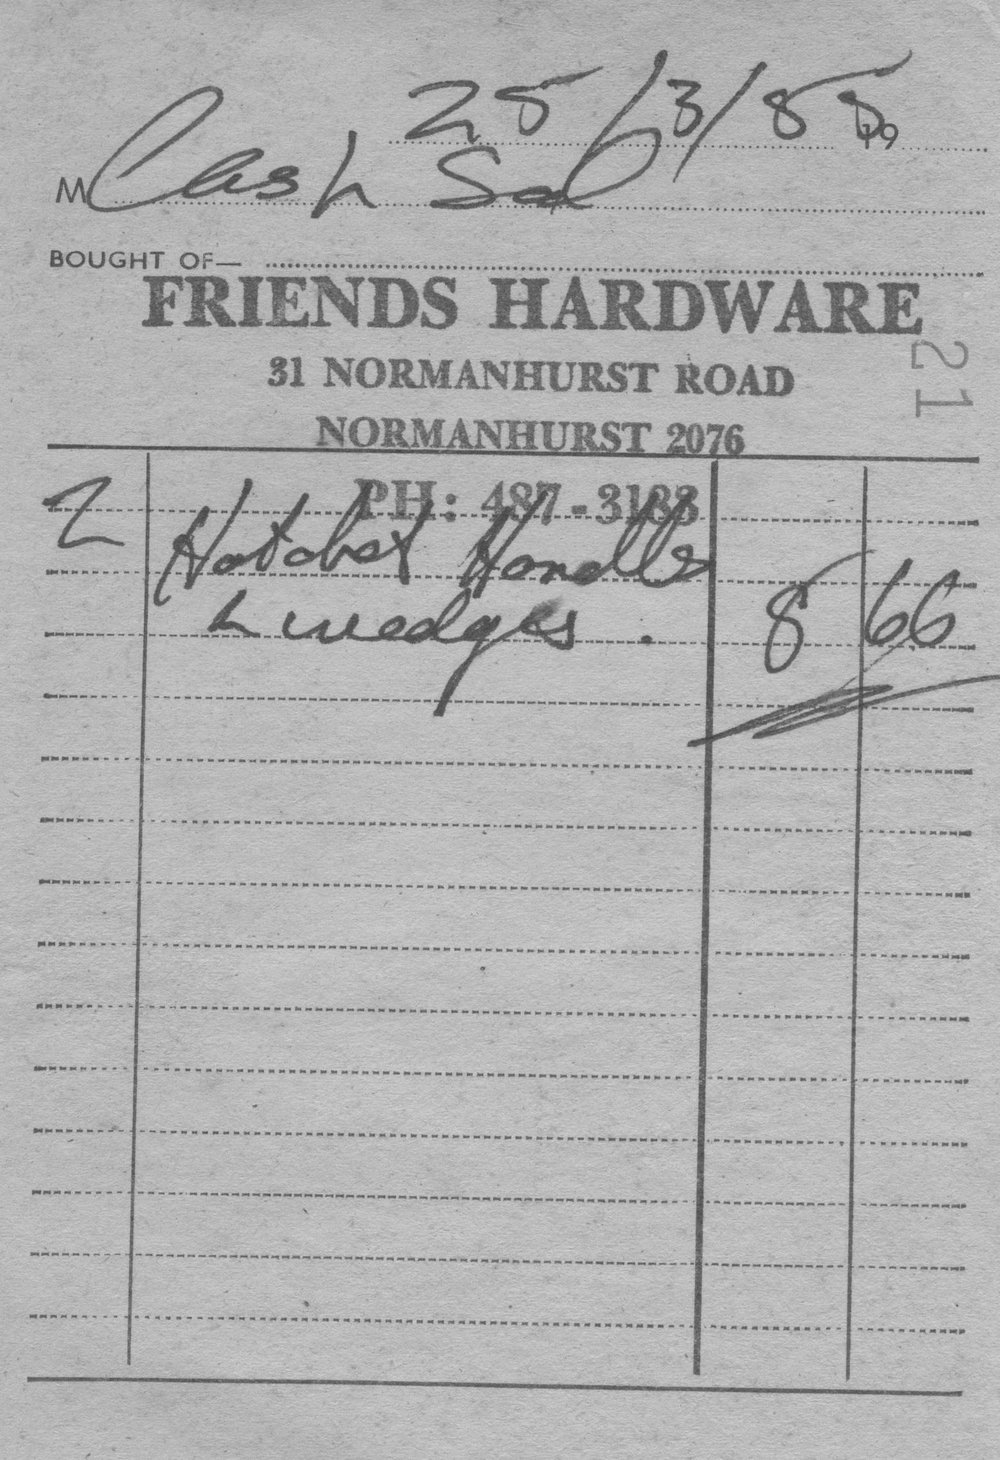 25/3/85 19
M Cash Sal
BOUGHT OF—
FRIENDS HARDWARE
21
31 NORMANHURST ROAD
NORMANHURST 2076
PH: 487-3183
2 Hatchet Handles
& wedges. 8 66